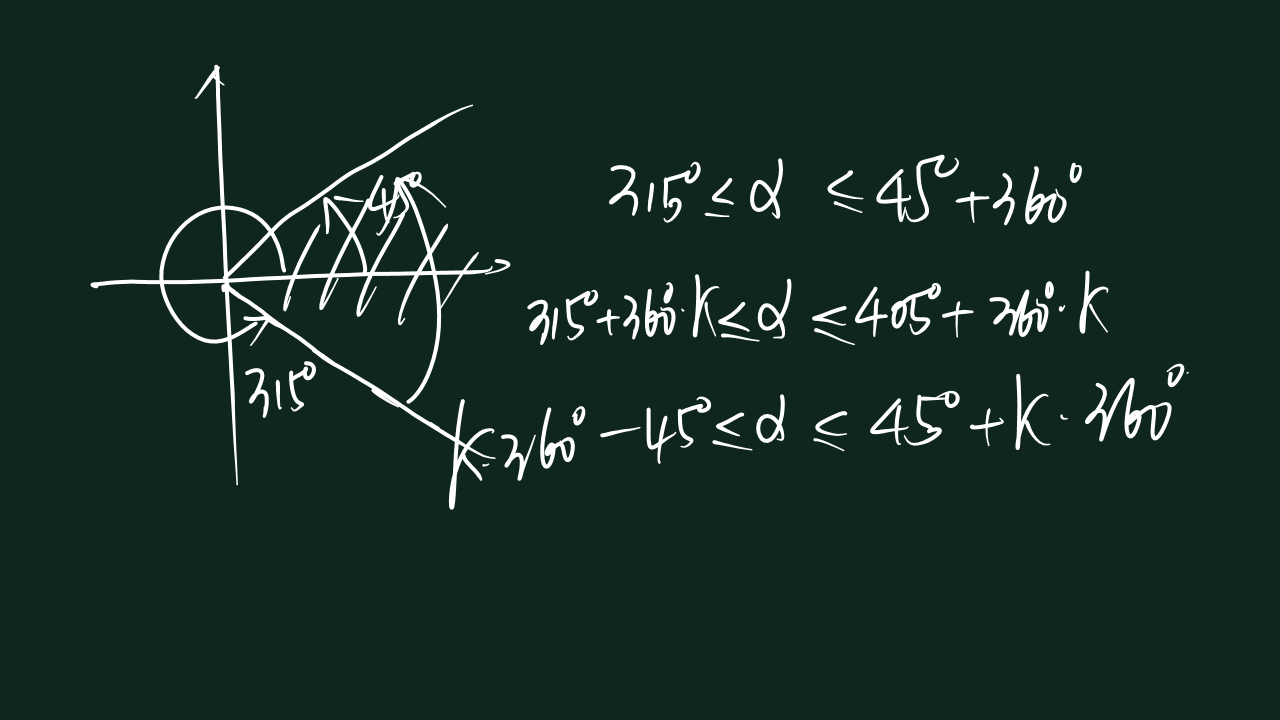 45°
315°
315° ≤ α ≤ 45° + 360°
315° + 360° · k ≤ α ≤ 405° + 360° · k
k · 360° - 45° ≤ α ≤ 45° + k · 360°